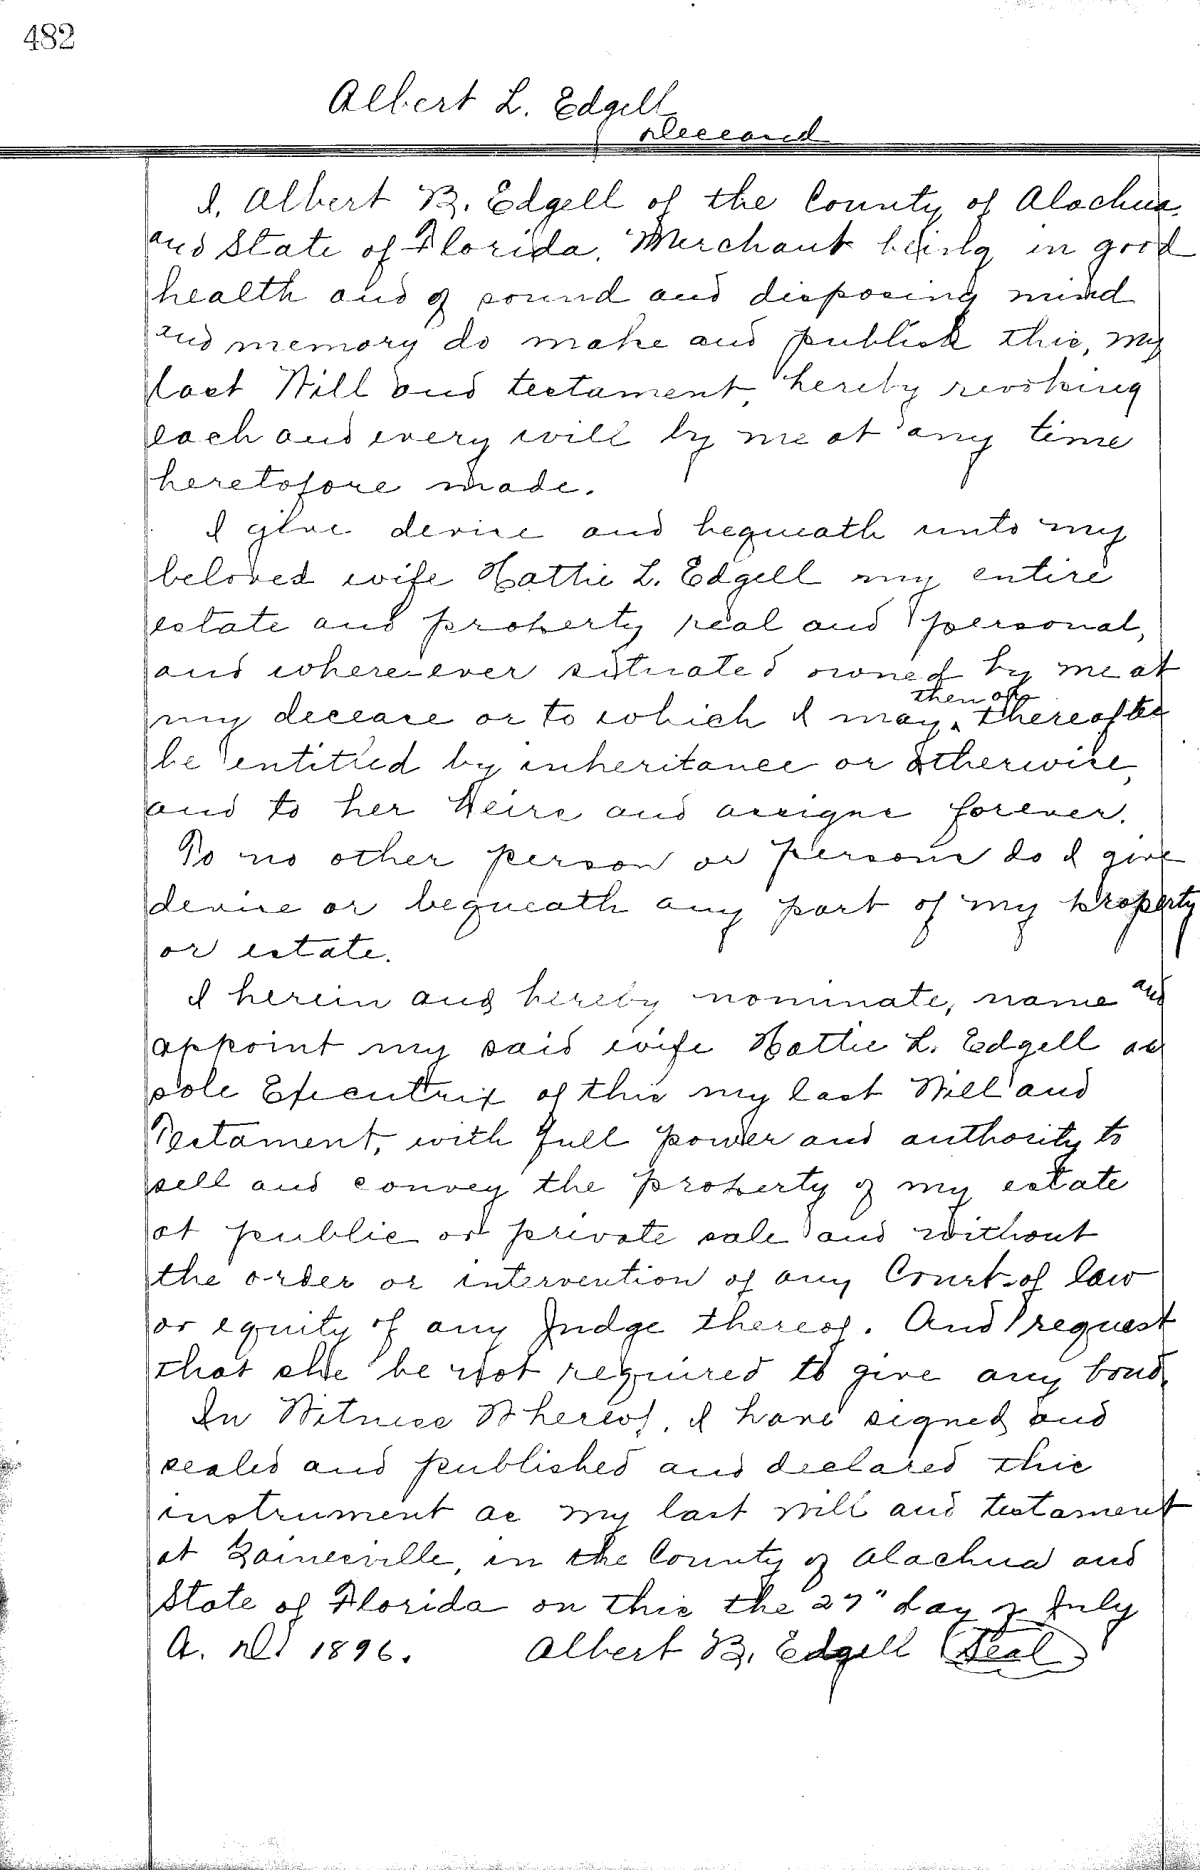 482
Albert L. Edgell
Deceased
I, Albert B. Edgell of the County of Alachua
and State of Florida, Merchant being in good
health and of sound and disposing mind
and memory do make and publish this, my
last Will and testament, hereby revoking
each and every will by me at any time
heretofore made.
I give devise and bequeath unto my
beloved wife Hattie L. Edgell my entire
estate and property real and personal,
and where-ever situated owned by me at
then or
my decease or to which I may ‸ thereafter
be entitled by inheritance or otherwise,
and to her heirs and assigns forever.
To no other person or persons do I give
devise or bequeath any part of my property
or estate.
I herein and hereby nominate, name and
appoint my said wife Hattie L. Edgell as
sole Executrix of this my last Will and
Testament, with full power and authority to
sell and convey the property of my estate
at public or private sale and without
the order or intervention of any Court of law
or equity of any Judge thereof. And I request
that she be not required to give any bond.
In Witness Whereof, I have signed and
sealed and published and declared this
instrument as my last will and testament
at Gainesville, in the County of Alachua and
State of Florida on this the 27" day of July
A. D. 1896. Albert B. Edgell (Seal)